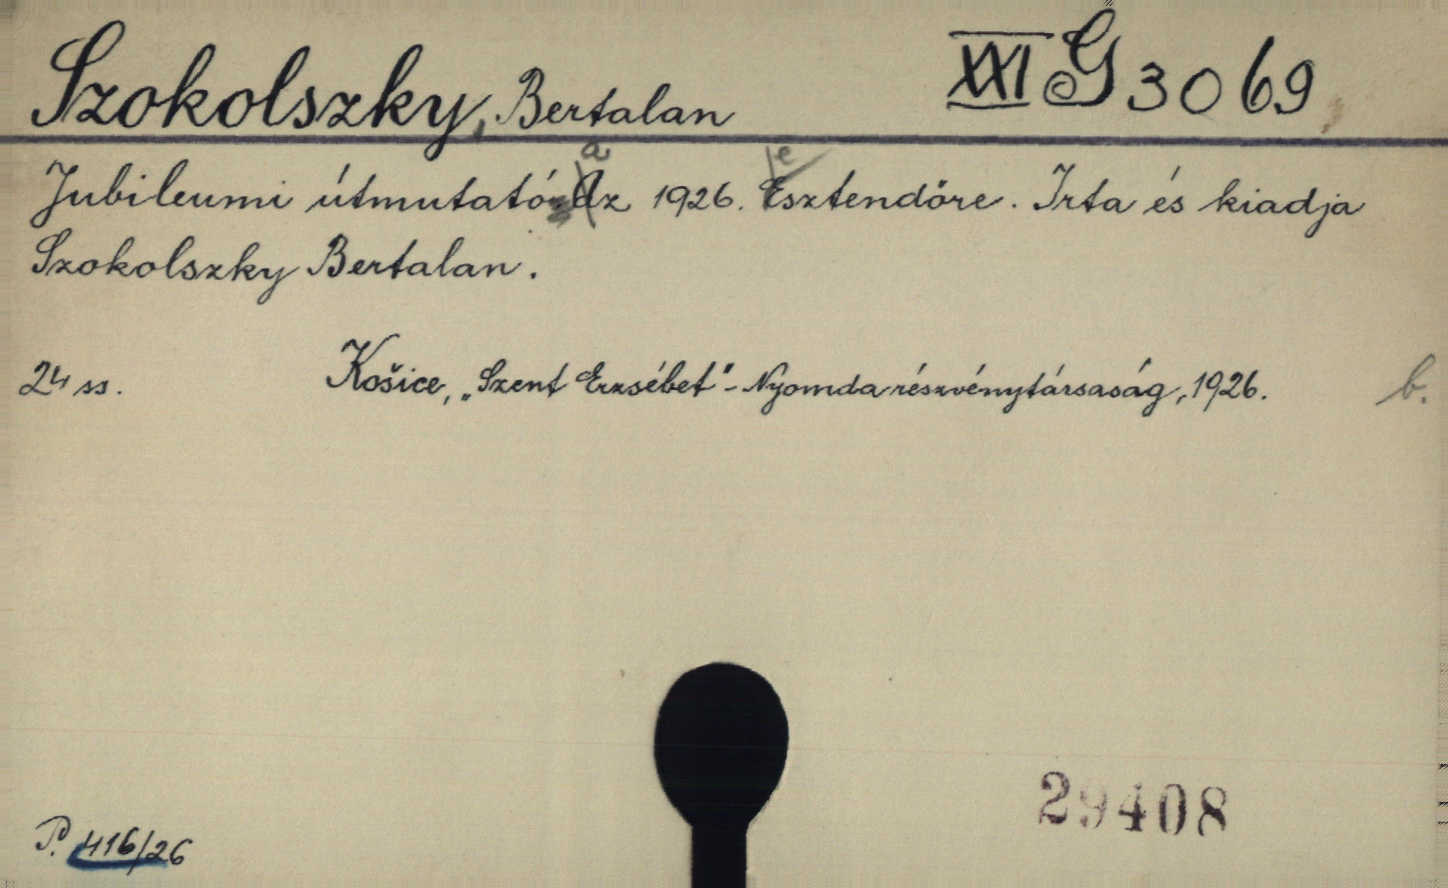 Szokolszky, Bertalan XXI G 3069
Jubileumi útmutató az 1926. esztendőre. Irta és kiadja
Szokolszky Bertalan.
24 ss. Košice, „Szent Erzsébet"-Nyomda részvénytársaság, 1926. b.
29408
P. 416/26